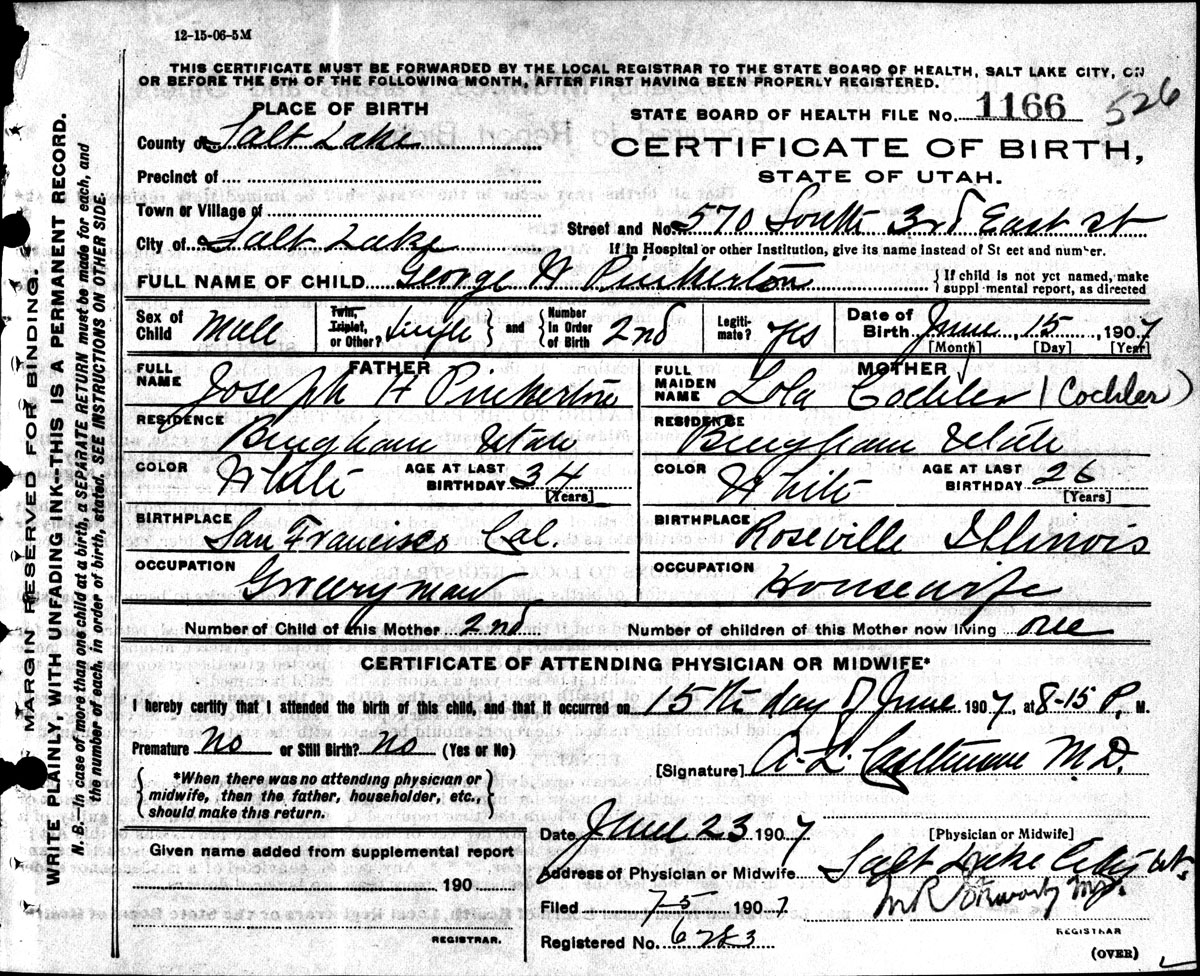 12-15-06-5M
THIS CERTIFICATE MUST BE FORWARDED BY THE LOCAL REGISTRAR TO THE STATE BOARD OF HEALTH, SALT LAKE CITY, ON
OR BEFORE THE 5TH OF THE FOLLOWING MONTH, AFTER FIRST HAVING BEEN PROPERLY REGISTERED.
PLACE OF BIRTH
STATE BOARD OF HEALTH FILE No. 1166 526
County of Salt Lake
CERTIFICATE OF BIRTH,
Precinct of
STATE OF UTAH.
Town or Village of
Street and No. 570 South 3rd East st
City of Salt Lake
If in Hospital or other Institution, give its name instead of St eet and number.
FULL NAME OF CHILD George H Pinkerton
If child is not yet named, make
suppl mental report, as directed
Sex of Child Male Twin, Triplet, or Other? Single and Number In Order of Birth 2nd Legitimate? Yes Date of Birth June 15, 1907
[Month] [Day] [Year]
FATHER MOTHER
FULL NAME Joseph H Pinkerton FULL MAIDEN NAME Lola Cochler (Cochler)
RESIDENCE Bingham Utah RESIDENCE Bingham Utah
COLOR White AGE AT LAST BIRTHDAY 34 [Years] COLOR White AGE AT LAST BIRTHDAY 26 [Years]
BIRTHPLACE San Francisco Cal. BIRTHPLACE Roseville Illinois
OCCUPATION Groceryman OCCUPATION Housewife
Number of Child of this Mother 2nd Number of children of this Mother now living one
CERTIFICATE OF ATTENDING PHYSICIAN OR MIDWIFE*
I hereby certify that I attended the birth of this child, and that it occurred on 15th day of June 1907, at 8-15 P. M.
Premature no or Still Birth? no (Yes or No)
[Signature] A. L. M.D.
*When there was no attending physician or
midwife, then the father, householder, etc.,
should make this return.
Date June 23 1907 [Physician or Midwife]
Given name added from supplemental report
190
Address of Physician or Midwife Salt Lake City Ut.
Filed 7-5 1907
REGISTRAR.
REGISTRAR
Registered No. 6283
(OVER)
MARGIN RESERVED FOR BINDING.
WRITE PLAINLY, WITH UNFADING INK—THIS IS A PERMANENT RECORD.
N. B.—In case of more than one child at a birth, a SEPARATE RETURN must be made for each, and
the number of each, in order of birth, stated. SEE INSTRUCTIONS ON OTHER SIDE.